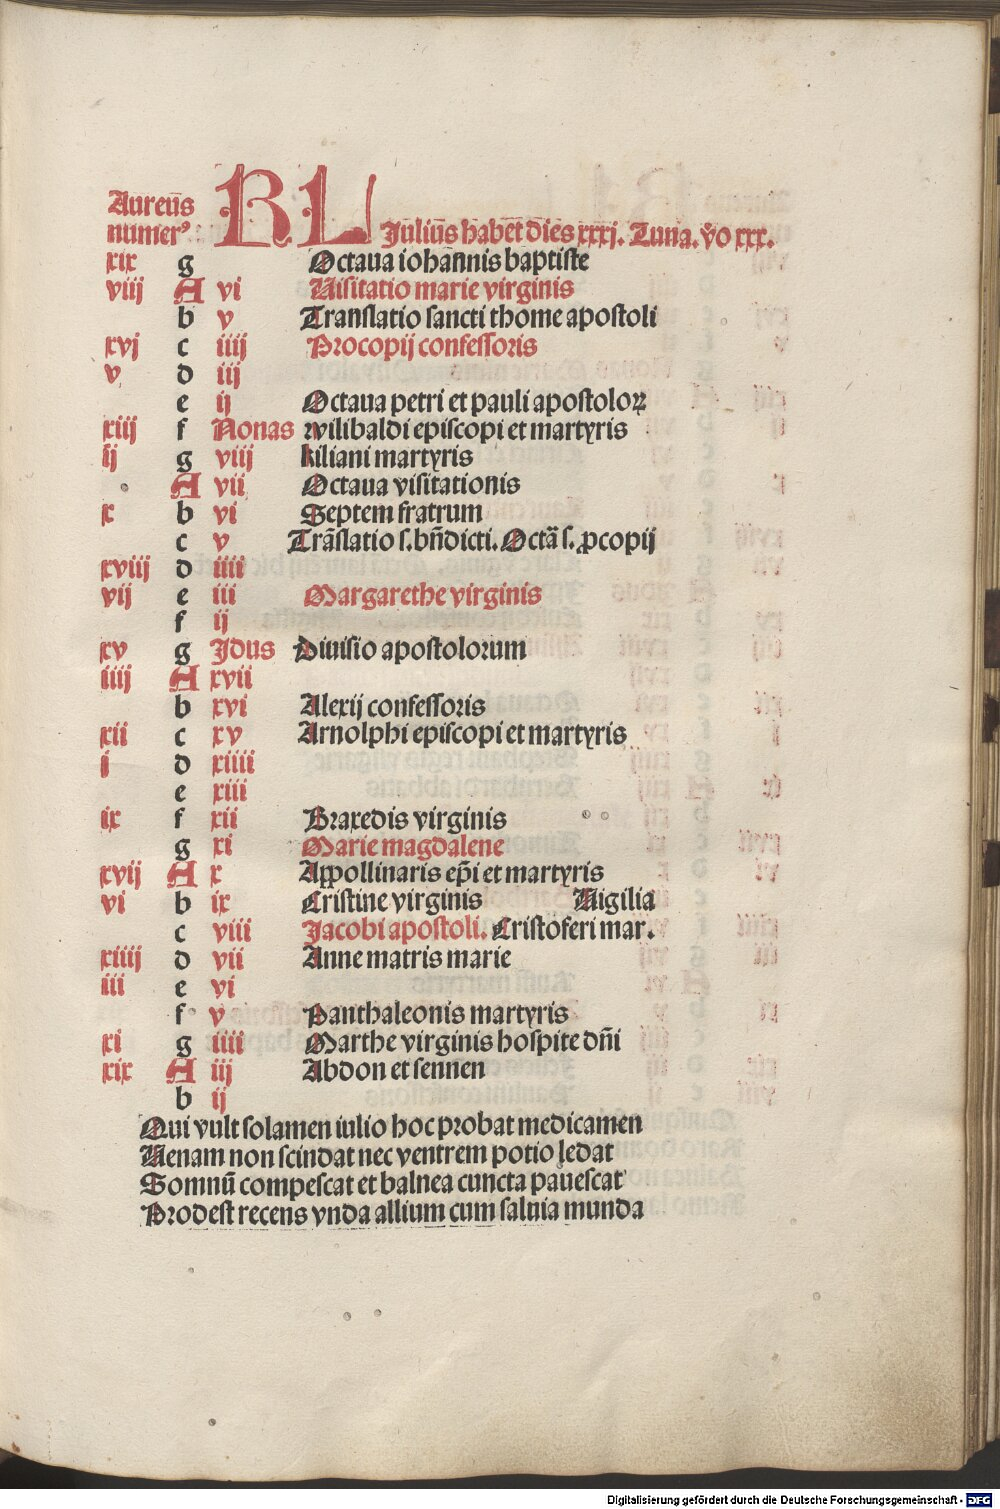 Aureūs
numerꝰ KL Julius habet dies xxxj. Luna. v̄o xxx.
xix g Octaua iohannis baptiste
viij A vi Uisitatio marie virginis
b v Translatio sancti thome apostoli
xvj c iiij Procopij confessoris
v d iij
e ij Octaua petri et pauli apostoloꝝ
xiij f Nonas wilibaldi episcopi et martyris
ij g viij kiliani martyris
A vij Octaua visitationis
x b vi Septem fratrum
c v Trāslatio s. bn̄dicti. Octā s. ꝓcopij
xviij d iiij
vij e iij Margarethe virginis
f ij
xv g Jdus Diuisio apostolorum
iiij A xvij
b xvi Alexij confessoris
xij c xv Arnolphi episcopi et martyris
j d xiiij
e xiij
ix f xij Braxedis virginis
g xi Marie magdalene
xvij A x Appollinaris ep̄i et martyris
vi b ix Cristine virginis Uigilia
c viij Jacobi apostoli. Cristoferi mar.
xiiij d vij Anne matris marie
iij e vi
f v Panthaleonis martyris
xi g iiij Marthe virginis hospite dn̄i
xix A iij Abdon et sennen
b ij
Qui vult solamen iulio hoc probat medicamen
Uenam non scindat nec ventrem potio lędat
Somnū compescat et balnea cuncta pauescat
Prodest recens vnda allium cum saluia munda
Digitalisierung gefördert durch die Deutsche Forschungsgemeinschaft - DFG